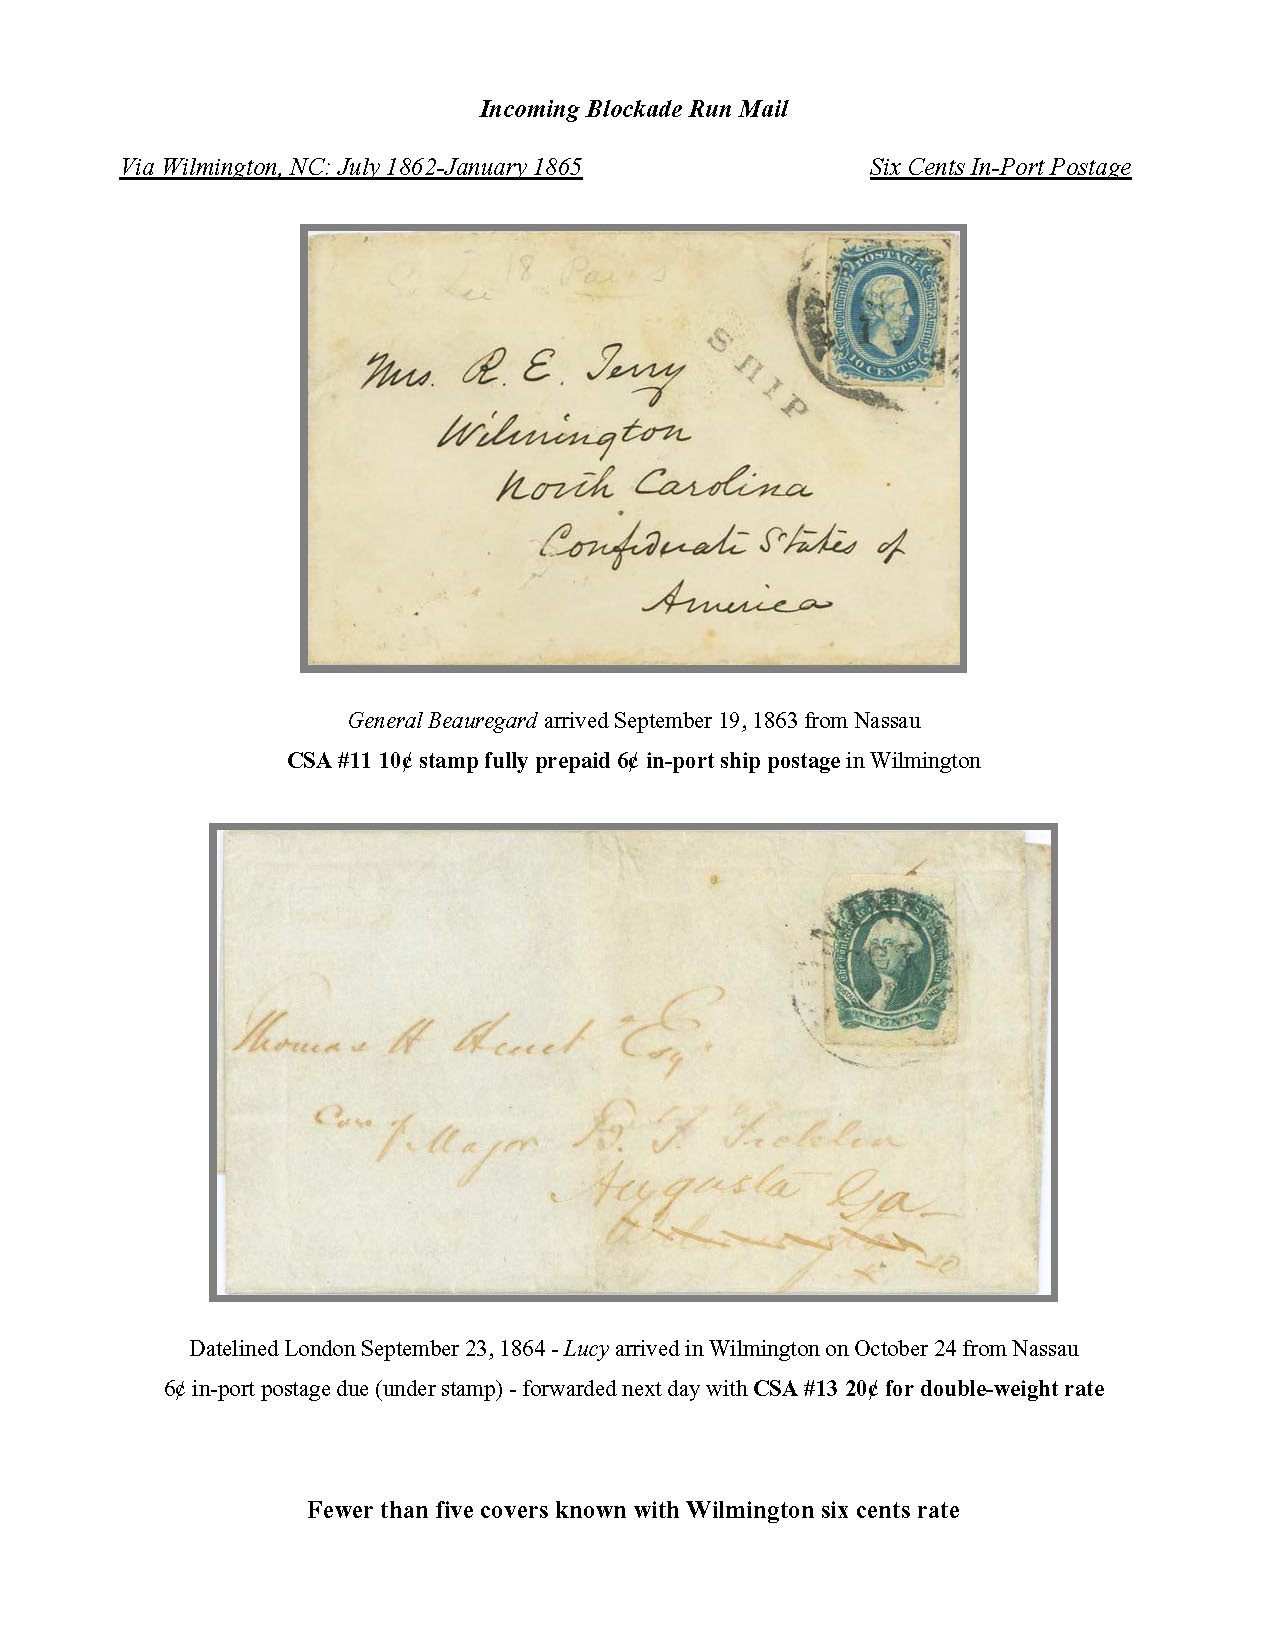 Incoming Blockade Run Mail
Via Wilmington, NC: July 1862-January 1865
Six Cents In-Port Postage
18
POSTAGE
The Confederate States of America
10 CENTS
SHIP
Mrs. R. E. Terry
Wilmington
North Carolina
Confederate States of
America
General Beauregard arrived September 19, 1863 from Nassau
CSA #11 10¢ stamp fully prepaid 6¢ in-port ship postage in Wilmington
6
TWENTY
Thomas H Esqr
Care of Major B. F. Ficklin
Augusta Ga
Datelined London September 23, 1864 - Lucy arrived in Wilmington on October 24 from Nassau
6¢ in-port postage due (under stamp) - forwarded next day with CSA #13 20¢ for double-weight rate
Fewer than five covers known with Wilmington six cents rate